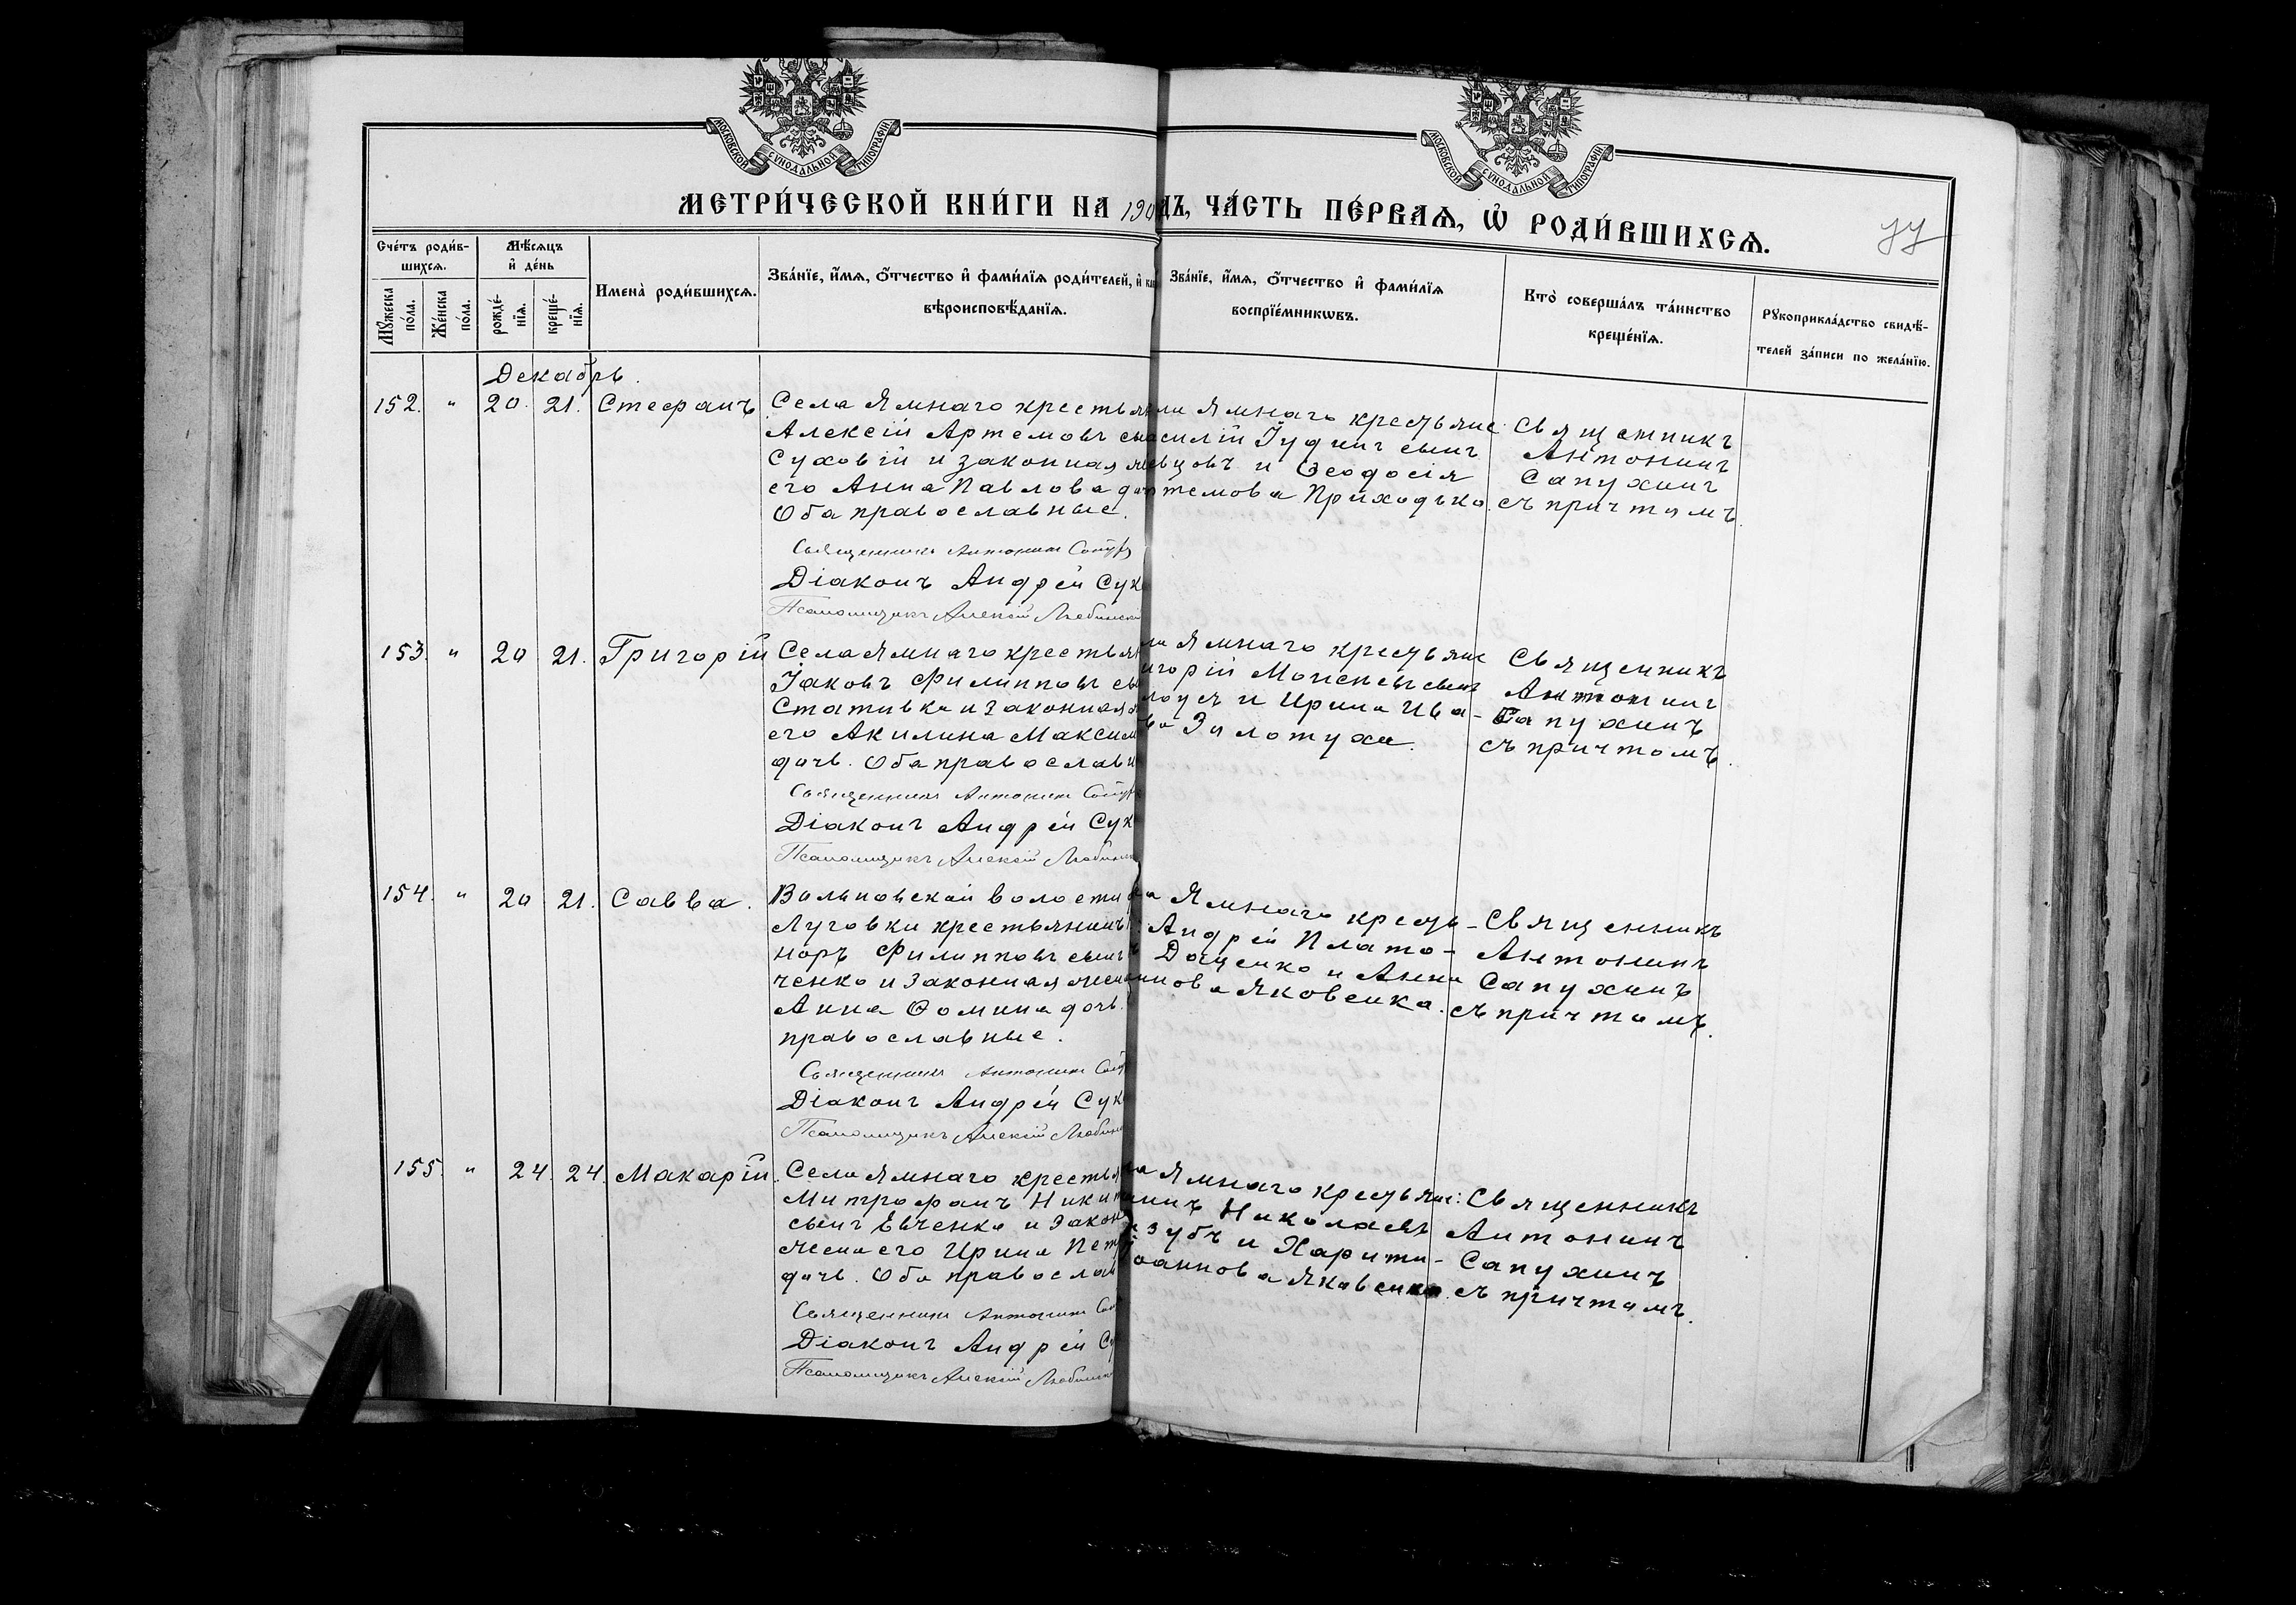 МОСКОВСКОЙ СѴНОДАЛЬНОЙ ТИПОГРАФІИ
МОСКОВСКОЙ СѴНОДАЛЬНОЙ ТИПОГРАФІИ
МЕТРИ́ЧЕСКОЙ КНИ́ГИ НА 190 ДЪ, ЧА́СТЬ ПЕ́РВАѦ, Ѡ҆ РОДИ́ВШИХСѦ.
Сче́тъ роди́в-
шихсѧ.
Мѣ́сѧцъ
и҆ де́нь
Мꙋ́жеска
по́ла.
Же́нска
по́ла.
рожде́-
нїѧ.
креще́-
нїѧ.
Имена̀ роди́вшихсѧ.
Зва́нїе, и҆́мѧ, ѻ҆́тчество и҆ фами́лїѧ роди́телей, и҆
вѣроисповѣ́данїѧ.
Зва́нїе, и҆́мѧ, ѻ҆́тчество и҆ фами́лїѧ
воспрїе́мникѡвъ.
Кто̀ соверша́лъ та́инство
креще́нїѧ.
Рꙋкоприкла́дство свидѣ́-
телей за́писи по жела́нїю.
Декабрь.
152. " 20. 21. Стефанъ
Села Ямнаго крестья
Алексій Артемовъ сы
Суховій и законная
его Анна Павлова
Оба православные.
Священникъ Антонинъ
Діаконъ Андрей
Псаломщикъ Алексій
Ямнаго крестьяне
Іудинъ сынъ
и Ѳеодосія
Приходько.
Священникъ
Антонинъ
Сапухинъ
съ причтомъ.
153. " 20 21. Григорій
Села Ямнаго крестья
Іаковъ Филипповъ
Стативка и законная
его Акилина Максим
дочь. Оба православ
Священникъ Антонинъ
Діаконъ Андрей
Псаломщикъ Алексій
Ямнаго крестьяне
Моисеевъ сынъ
и Ирина Ива-
Золотуха.
Священникъ
Антонинъ
Сапухинъ
съ причтомъ.
154. " 20 21. Савва.
Вольновской волости
Луговки крестьянинъ
норъ Филипповъ сынъ
ченко и законная
Анна Ѳомина дочь.
православные.
Священникъ Антонинъ
Діаконъ Андрей
Псаломщикъ Алексій
Ямнаго кресть-
Андрей Плато-
Доценко и Анна
Яковенкова.
Священникъ
Антонинъ
Сапухинъ
съ причтомъ.
155. " 24. 24. Макарій.
Села Ямнаго крестья
Митрофанъ Никит
сынъ Евченко и закон
жена его Ирина Пет
дочь. Оба православ
Священникъ Антонинъ
Діаконъ Андрей
Псаломщикъ Алексій
Ямнаго крестьяне:
Николаевъ
и Харити-
Яковенко.
Священникъ
Антонинъ
Сапухинъ
съ причтомъ.